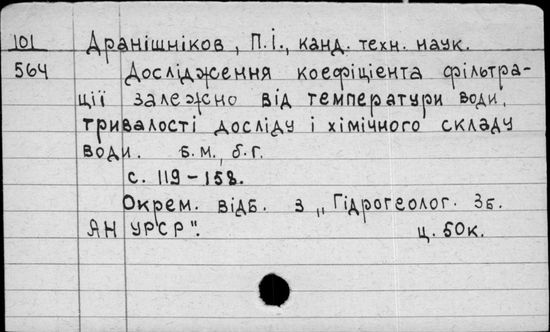 101 Дранішніков, П.І., канд. техн. наук.
564 Дослідження коефіціента фільтра-
ції залежно від температури води,
тривалості досліду і хімічного складу
води. б.м., б.г.
с. 119-158.
Окрем. відб. з „Гідрогеолог. Зб.
АН УРСР".
ц. 50к.